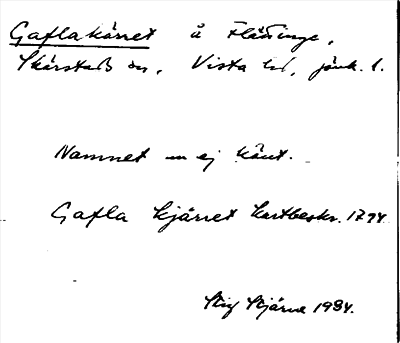 Gaflakärret å Flättinge,
Skärstads sn, Vista hd, jönk. l.
Namnet nu ej känt.
Gafla kjärret kartbeskr. 1794
Stig Stjärne 1934.